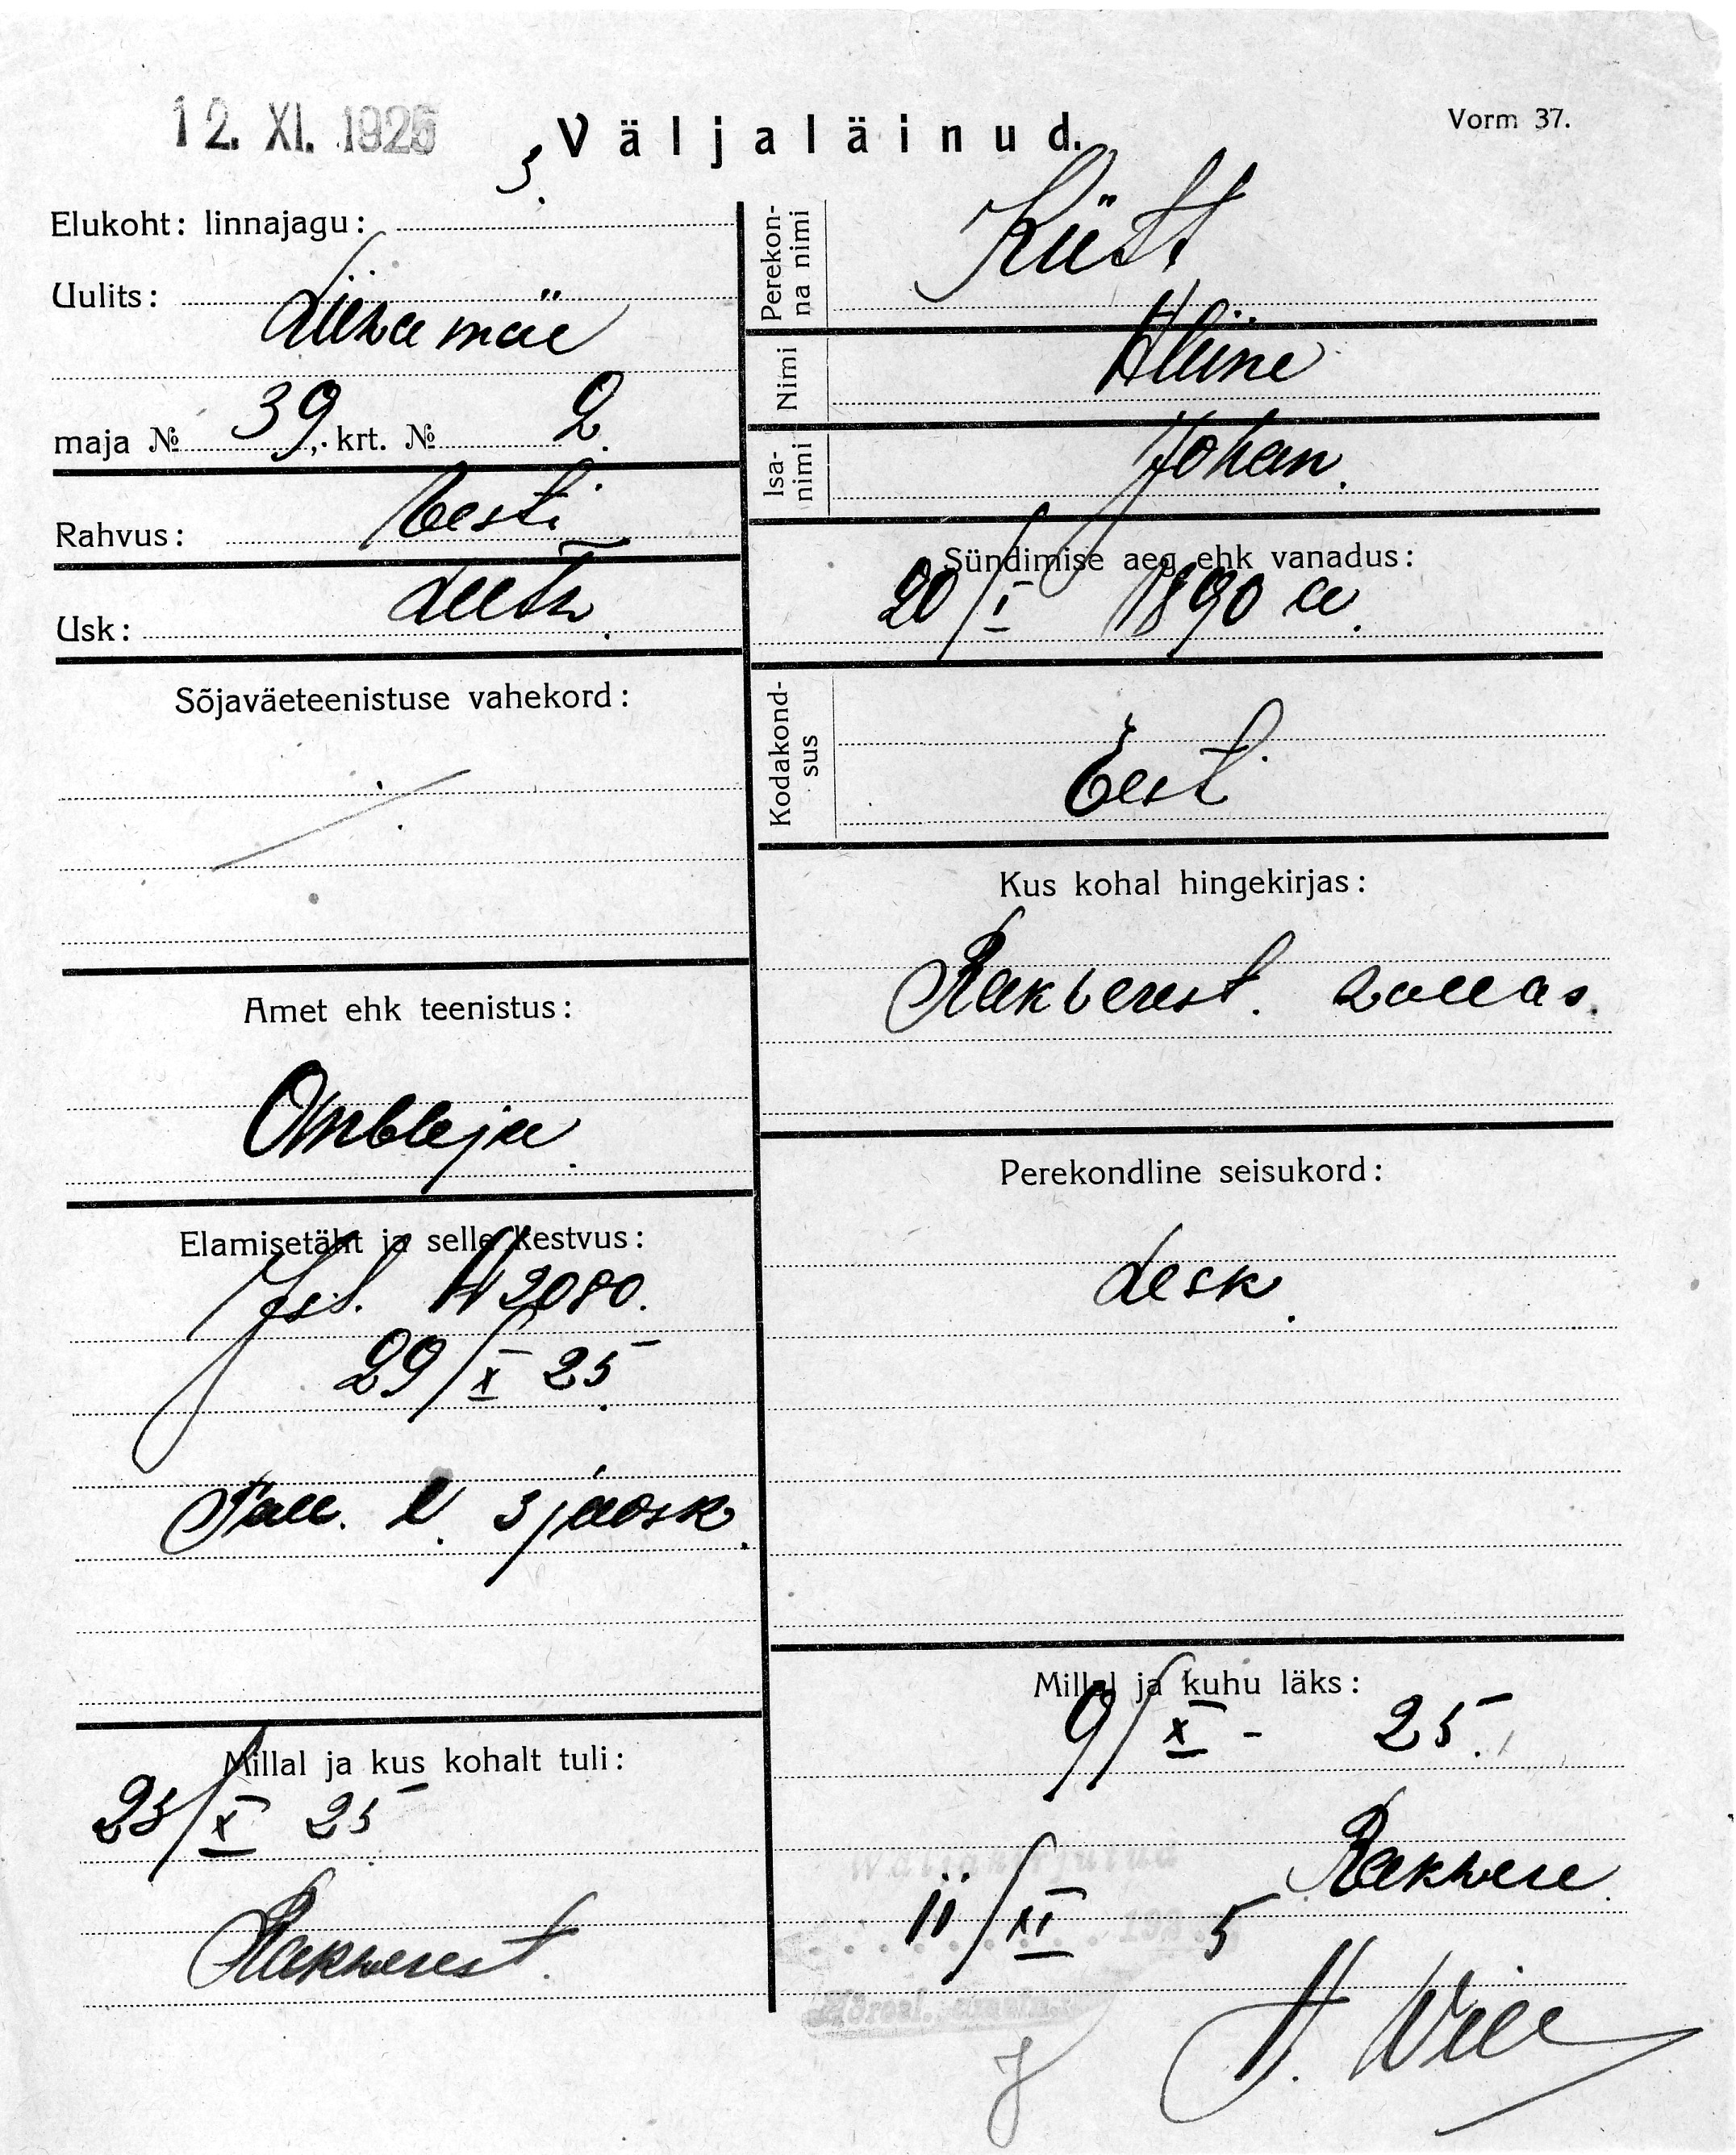 12. XI. 1925
Väljaläinud.
Vorm 37.
3.
Elukoht: linnajagu:
Uulits:
Liiwa mäe
maja № 39, krt. № 2.
Rahvus: Eesti
Usk: Luth.
Sõjaväeteenistuse vahekord:
Amet ehk teenistus:
Ombleja.
Elamisetäht ja selle kestvus:
Isl. № 2080.
29/X 25
Tall. l. 3 jaosk.
Millal ja kus kohalt tuli:
23/X 25
Rakwerest.
Perekonna nimi
Küt
Nimi
Isanimi
Johan.
Sündimise aeg ehk vanadus:
20/I 1890 a.
Kodakondsus
Eest
Kus kohal hingekirjas:
Rakverest. vallas.
Perekondline seisukord:
Lesk.
Millal ja kuhu läks:
9/XI - 25.
Rakwere.
Wäljakirjutud
11/XI 5